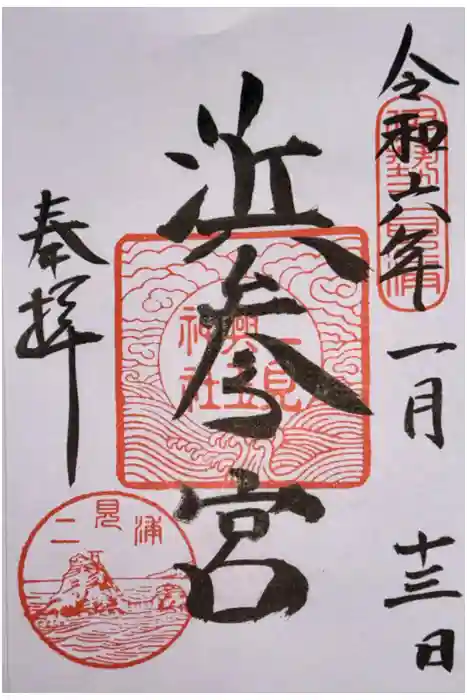 令和六年一月十三日
伊勢二見浦
浜参宮
二見興玉神社
奉拝
二見浦